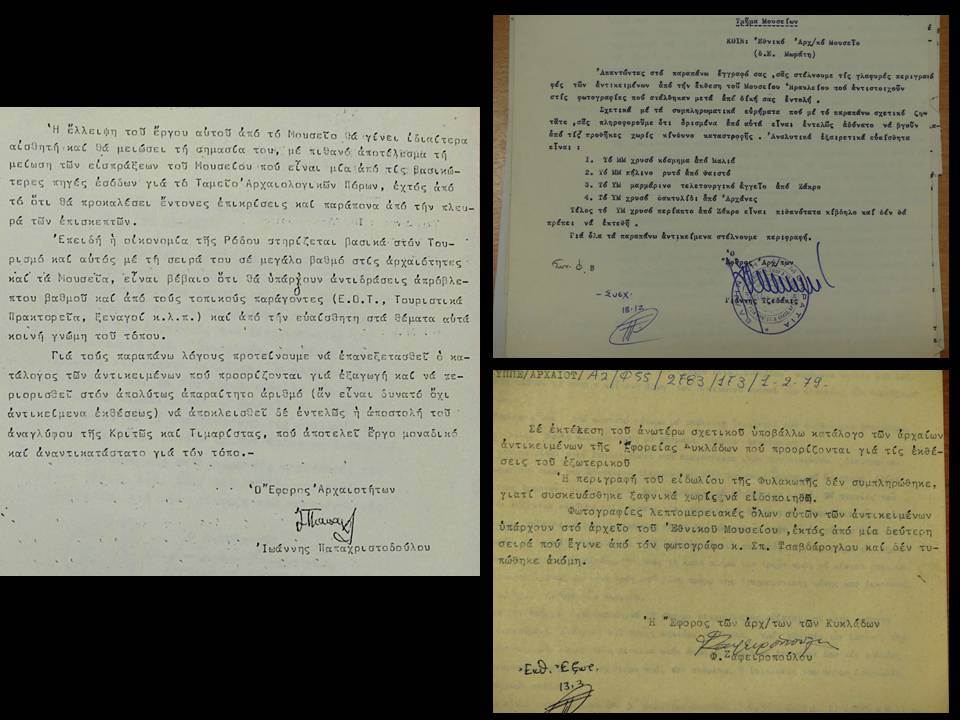 Ἡ ἔλλειψη τοῦ ἔργου αὐτοῦ ἀπό τό Μουσεῖο θά γίνει ἰδιαίτερα
αἰσθητή καί θά μειώσει τή σημασία του, μέ πιθανό ἀποτέλεσμα τή
μείωση τῶν εἰσπράξεων τοῦ Μουσείου πού εἶναι μία ἀπό τίς βασικώ-
τερες πηγές ἐσόδων γιά τό Ταμεῖο Ἀρχαιολογικῶν Πόρων, ἐχτός ἀπό
τό ὅτι θά προκαλέσει ἔντονες ἐπικρίσεις καί παράπονα ἀπό τήν πλευ-
ρά τῶν ἐπισκεπτῶν.
Ἐπειδή ἡ οἰκονομία τῆς Ρόδου στηρίζεται βασικά στόν Του-
ρισμό καί αὐτός μέ τή σειρά του σέ μεγάλο βαθμό στίς ἀρχαιότητες
καί τά Μουσεῖα, εἶναι βέβαιο ὅτι θά ὑπάρχουν ἀντιδράσεις ἀπρόβλε-
πτου βαθμοῦ καί ἀπό τούς τοπικούς παράγοντες (Ε.Ο.Τ., Τουριστικά
Πρακτορεῖα, ξεναγοί κ.λ.π.) καί ἀπό τήν εὐαίσθητη στά θέματα αὐτά
κοινή γνώμη τοῦ τόπου.
Γιά τούς παραπάνω λόγους προτείνουμε νά ἐπανεξετασθεῖ ὁ κα-
τάλογος τῶν ἀντικειμένων πού προορίζονται γιά ἐξαγωγή καί νά πε-
ριορισθεῖ στόν ἀπολύτως ἀπαραίτητο ἀριθμό (ἄν εἶναι δυνατό ὄχι
ἀντικείμενα ἐκθέσεως) νά ἀποκλεισθεῖ δέ ἐντελῶς ἡ ἀποστολή τοῦ
ἀναγλύφου τῆς Κριτῶς καί Τιμαρίστας, πού ἀποτελεῖ ἔργο μοναδικό
καί ἀναντικατάστατο γιά τόν τόπο.-
Ὁ Ἔφορος Ἀρχαιοτήτων
Ἰωάννης Παπαχριστοδούλου
Τμῆμα Μουσείων
ΚΟΙΝ: Ἐθνικό Ἀρχ/κό Μουσεῖο
Ἀπαντώντας στό παραπάνω ἔγγραφό σας, σᾶς στέλνουμε τίς γλαφυρές περιγρα
φές τῶν ἀντικειμένων ἀπό τήν ἔκθεση τοῦ Μουσείου Ἡρακλείου πού ἀντιστοιχοῦν
στίς φωτογραφίες πού στάλθηκαν μετά ἀπό δική σας ἐντολή.
Σχετικά μέ τά συμπληρωματικά εὑρήματα πού μέ τό παραπάνω σχετικό ζη-
τᾶτε, σᾶς πληροφοροῦμε ὅτι ὁρισμένα ἀπό αὐτά εἶναι ἐντελῶς ἀδύνατο νά βγοῦν
ἀπό τίς προθῆκες χωρίς κίνδυνο καταστροφῆς. Ἀναλυτικά ἐξαιρετικά εὐαίσθητα
εἶναι:
1. Τό ΜΜ χρυσό κόσμημα ἀπό Μαλιά
2. Τό ΜΜ πήλινο ρυτό ἀπό Φαιστό
3. Τό ΥΜ μαρμάρινο τελετουργικό ἀγγεῖο ἀπό Ζάκρο
4. Τό ΥΜ χρυσό δακτυλίδι ἀπό Ἀρχάνες
Τέλος τό ΥΜ χρυσό περίαπτο ἀπό Ζάκρο εἶναι πιθανότατα κίβδηλο καί δέν θά
πρέπει νά ἐκτεθῆ.
Γιά ὅλα τά παραπάνω ἀντικείμενα στέλνουμε περιγραφή.
Ὁ
Ἔφορος Ἀρχ/των
Γιάννης Τζεδάκις
18.12
ΥΠΠΕ/ΑΡΧΑΙΟΤ/Α2/Φ55/2783/173/1-2-79.
Σέ ἐκτέλεση τοῦ ἀνωτέρω σχετικοῦ ὑποβάλλω κατάλογο τῶν ἀρχαίων
ἀντικειμένων τῆς Ἐφορείας Κυκλάδων πού προορίζονται γιά τίς ἐκθέ-
σεις τοῦ ἐξωτερικοῦ
Ἡ περιγραφή τοῦ εἰδωλίου τῆς Φυλακωπῆς δέν συμπληρώθηκε,
γιατί συσκευάσθηκε ξαφνικά χωρίς νά εἰδοποιηθῶ.
Φωτογραφίες λεπτομερειακές ὅλων αὐτῶν τῶν ἀντικειμένων
ὑπάρχουν στό ἀρχεῖο τοῦ Ἐθνικοῦ Μουσείου, ἐκτός ἀπό μία δεύτερη
σειρά πού ἔγινε ἀπό τόν φωτογράφο κ. Σπ. Τσαβδάρογλου καί δέν τυ-
πώθηκε ἀκόμη.
Ἡ Ἔφορος τῶν ἀρχ/των τῶν Κυκλάδων
Φ. Ζαφειροπούλου
Ἐκθ. Ἐξωτ.
13.3